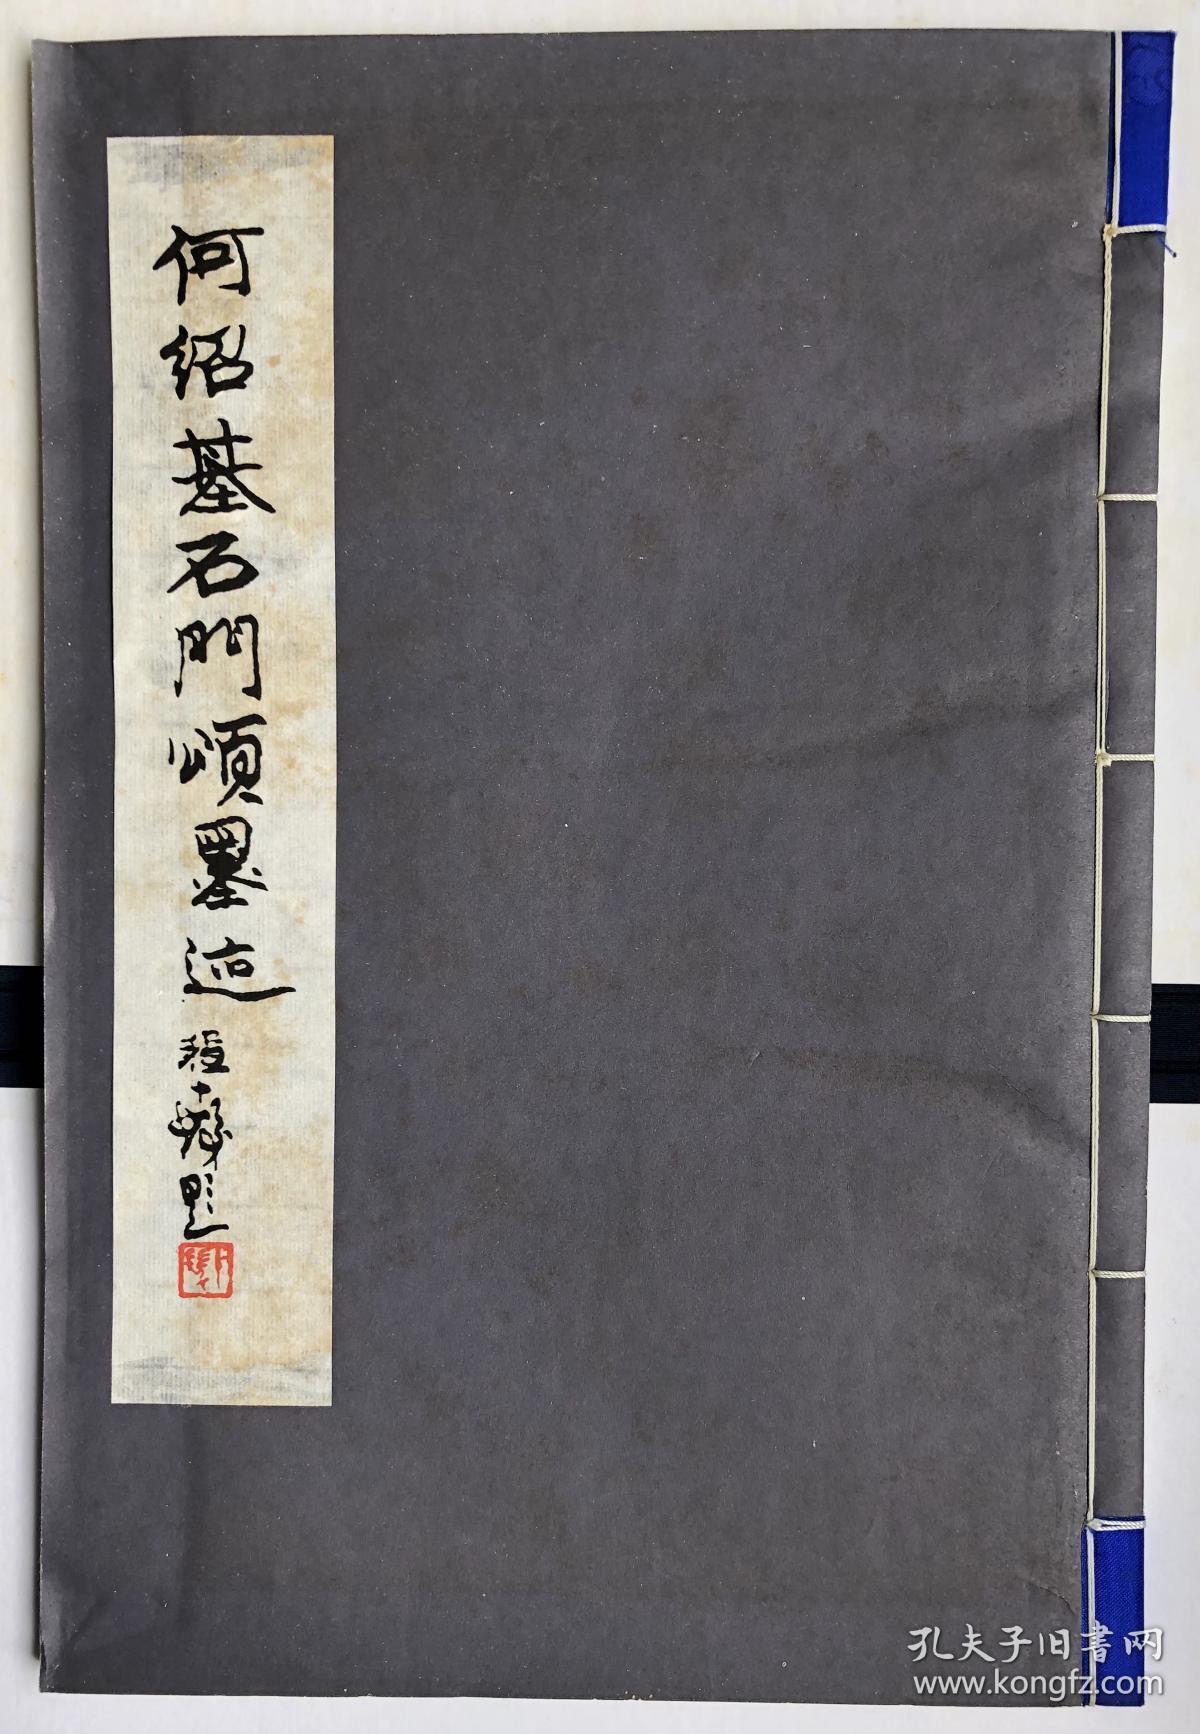 何绍基石門頌墨迹
程十髮題
孔夫子旧書网
www.kongfz.com